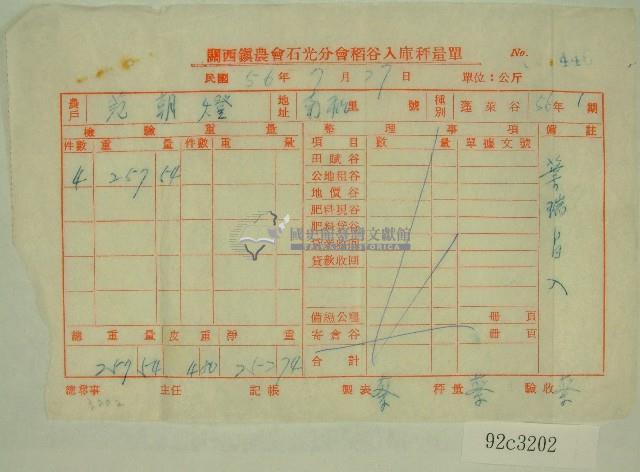 關西鎮農會石光分會稻谷入庫秤量單 No.
民國 56 年 7 月 27 日 單位：公斤
農戶 范朝燈 地址 南和里 號 種別 蓬萊谷 56年 1 期
檢驗重量 整理事項 備註
件數 重量 件數 重量 項目 數量 單據文號
4 257 54
田賦谷
公地租谷
地價谷
肥料現谷
肥料貸谷
貸款收回
備繳公糧 冊頁
寄倉谷 冊頁
合計
葉瑞昌入
總重量 皮重 淨重
257 54 4 80 252 74
總幹事 主任 記帳 製表 葉 秤量 葉 驗收 葉
3202
國史館臺灣文獻館
TAIWAN HISTORICA
92c3202